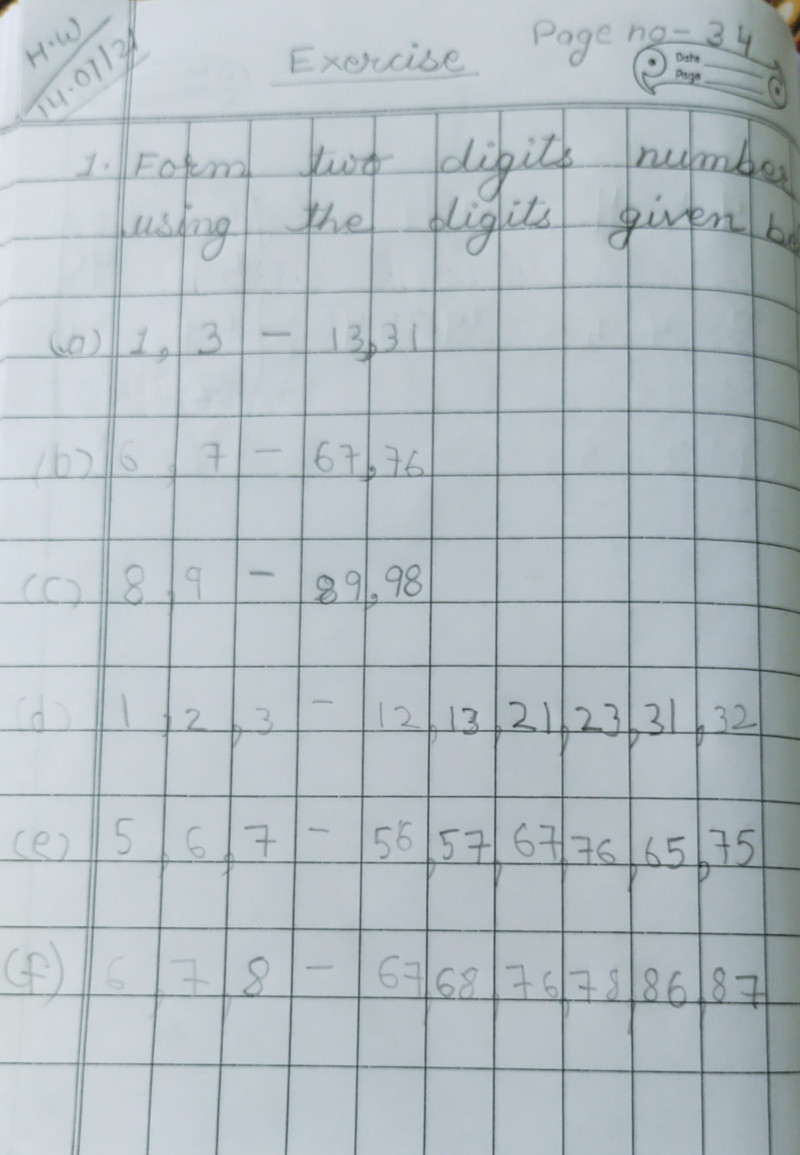 H.W
14.07/21
Page no- 34
Exercise
Date
Page
1. Form two digits number
using the digits given
(a) 1, 3 - 13,31
(b) 6, 7 - 67,76
(c) 8, 9 - 89,98
(d) 1, 2, 3 - 12,13,21,23,31,32
(e) 5, 6, 7 - 56,57,67,76,65,75
(f) 6, 7, 8 - 67,68,76,78,86,87